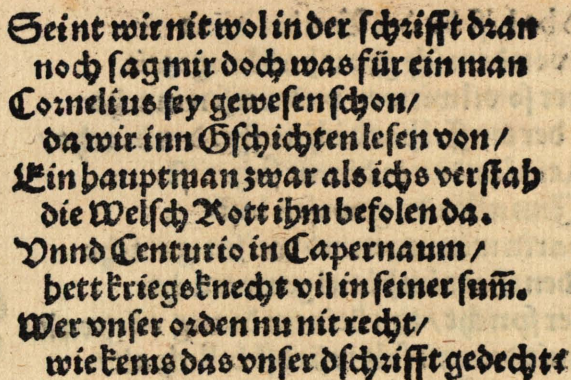 Seint wir nit wol in der schrifft dran
noch sag mir doch was für ein man
Cornelius sey gewesen schon/
da wir inn Gschichten lesen von/
Ein hauptman zwar als ichs verstah
die Welsch Rott ihm befolen da.
Vnnd Centurio in Capernaum/
hett kriegsknecht vil in seiner sum̅.
Wer vnser orden nu nit recht/
wie kems das vnser dschrifft gedecht